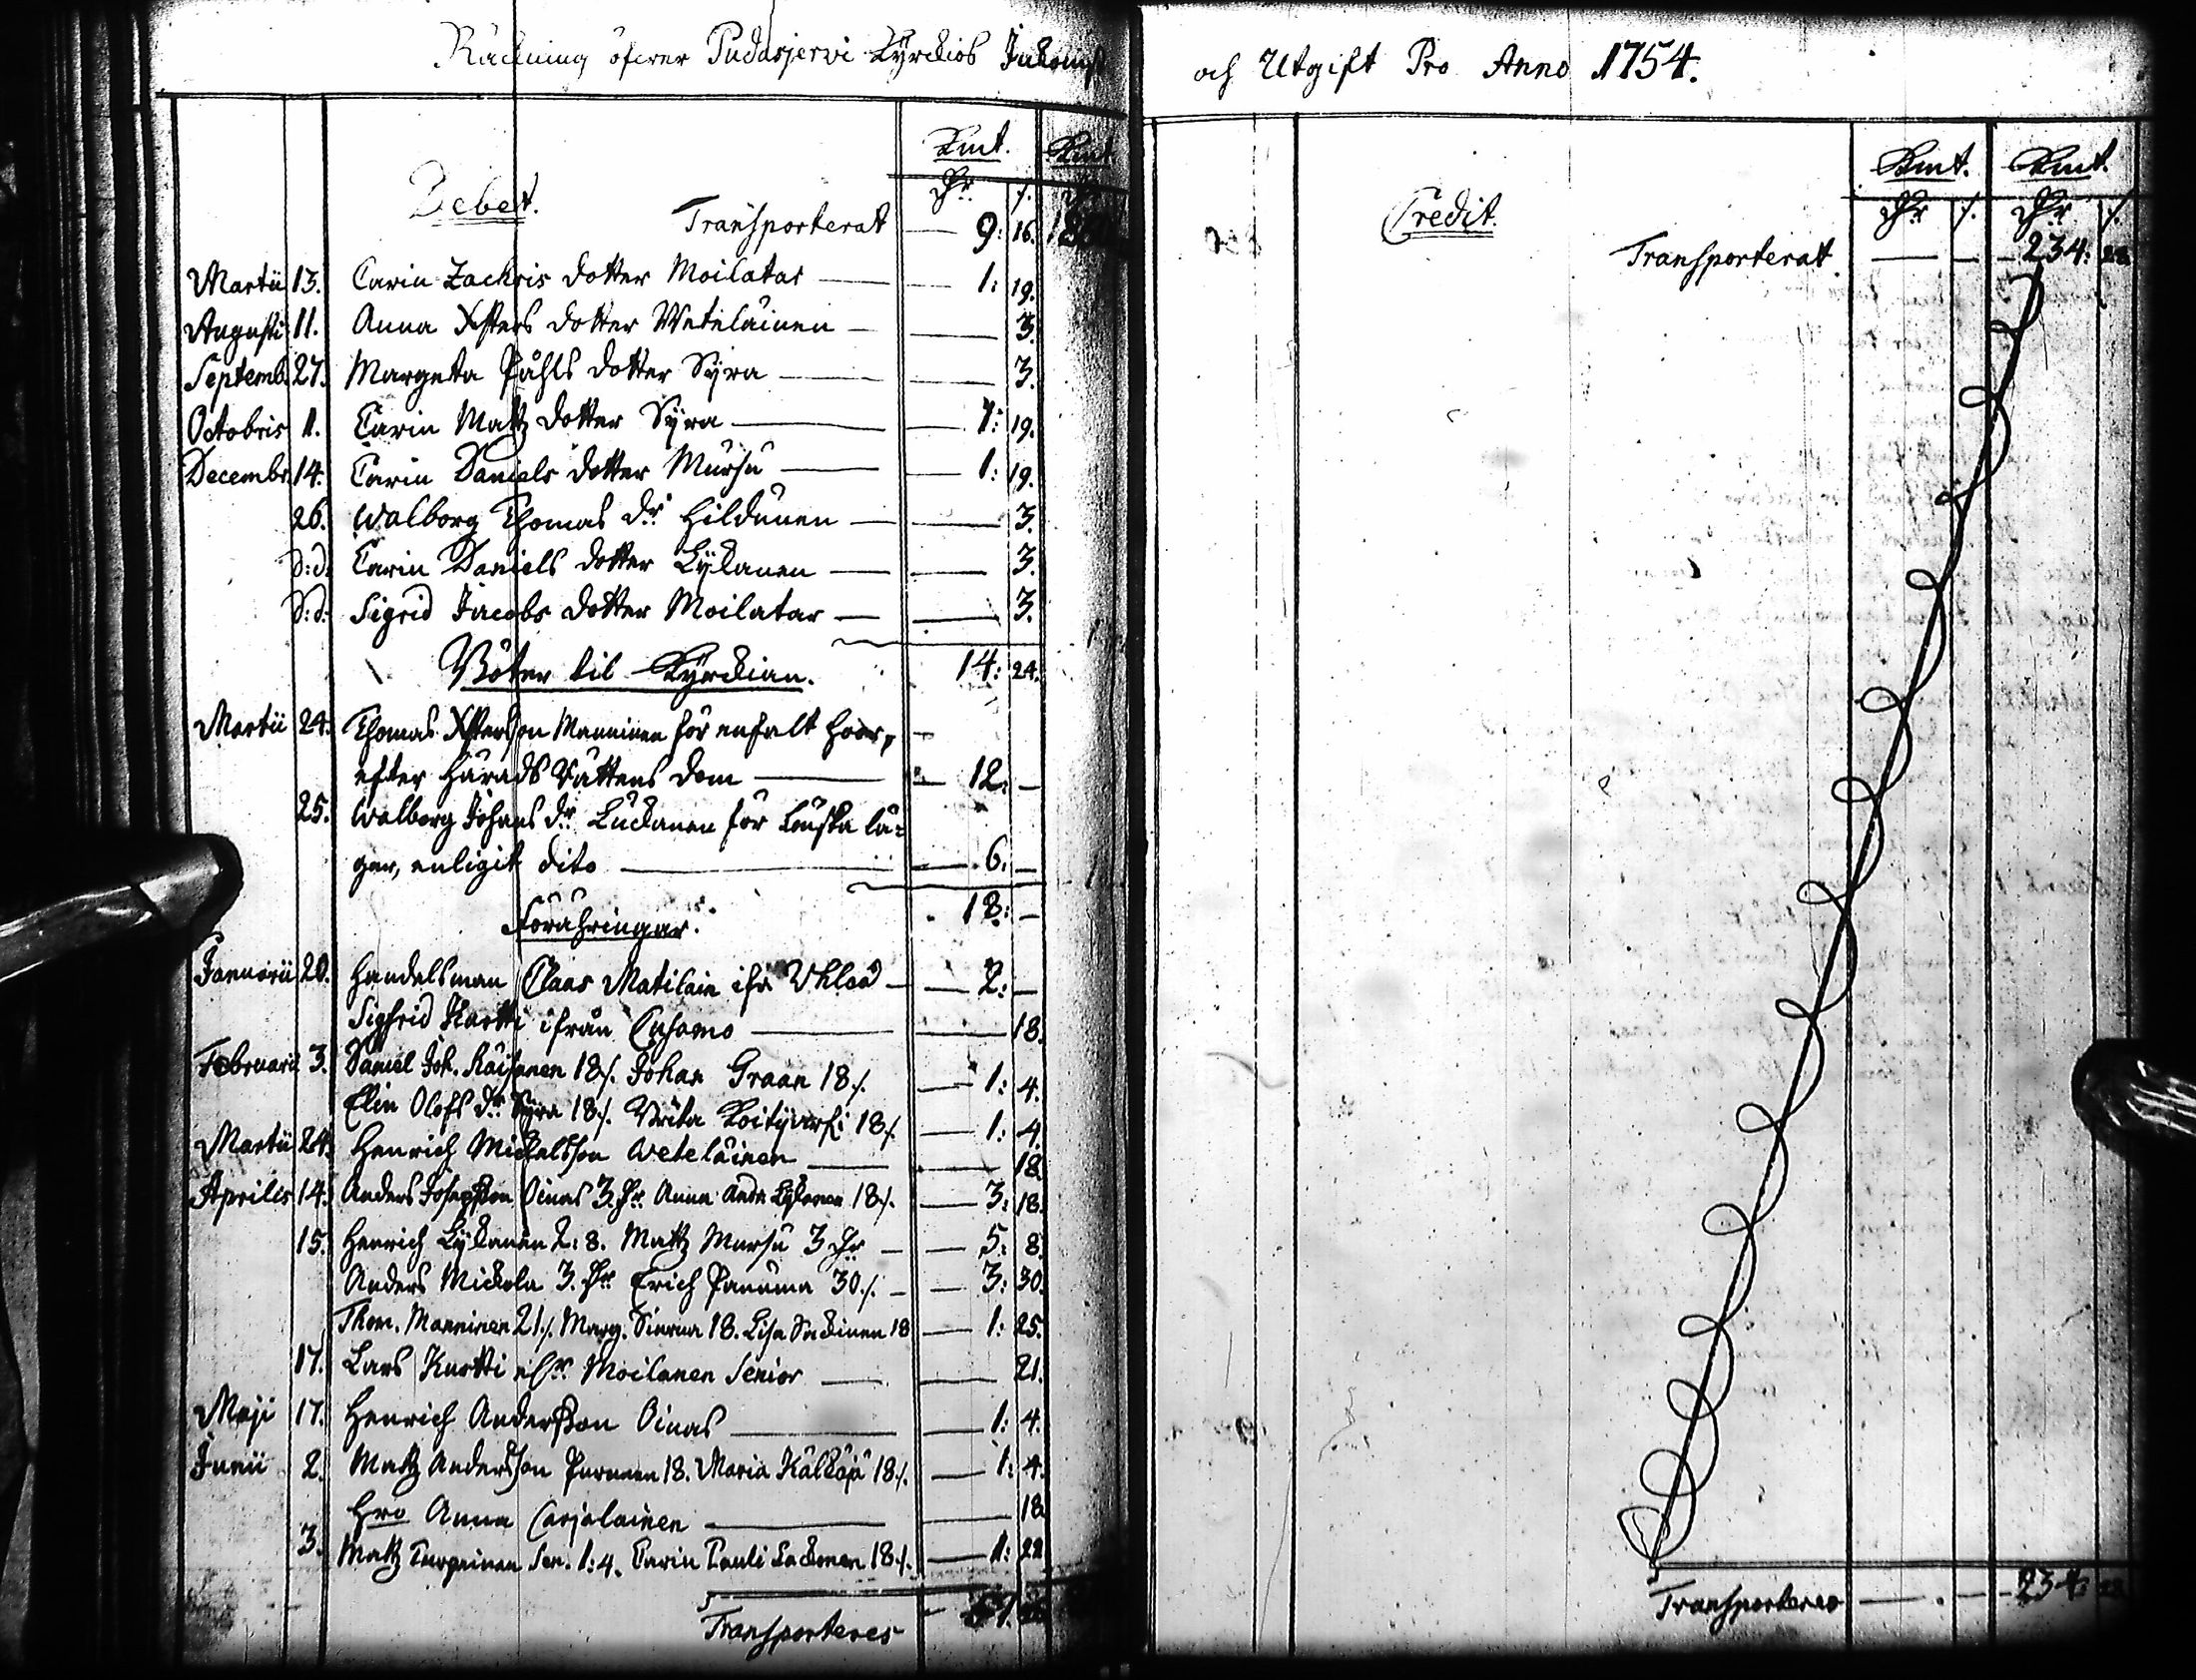 Räckning öfwer Pudasjerwi Kyrckios Inkomst
Kmt. Kmt.
Debet. dhr. /.
Transporterat — 9: 16.
Martii 13. Carin Zachris dotter Moilatar — 1: 19.
Augusti 11. Anna Xsters dotter Weteläinen — 3.
Septemb. 27. Margeta Påhls dotter Syra — 3.
Octobris 1. Carin Mattz dotter Syra — 1: 19.
Decembr. 14. Carin Daniels dotter Mursu — 1: 19.
26. Walborg Thomas dr. Hildunen — 3.
d:d: Carin Daniels dotter Lyckanen — 3.
d:d: Sigrid Jacobs dotter Moilatar — 3.
Böter til Kyrckian. 14: 24.
Martii 24. Thomas Xsterson Manninen för enfalt hoor,
efter Härads Rättens dom — 12: —
25. Walborg Johans dr. Luckanen för Lönska lä=
ger, enligit dito — 6. —
Förähringar. 18: —
Januarii 20. Handelsman Claas Matilain ifr. Uhloå — 2: —
Sigfrid Kurtti ifrån Cusamo — 18.
Februarii 3. Daniel Joh. Räisänen 18/. Johan Graan 18/. — 1: 4.
Elin Olofs dr. Syra 18/. Brita Koityversi 18/. — 1: 4.
Martii 24. Henrich Mickelsson Weteläinen — 18.
Aprilis 14. Anders Josepsson Oinas 3. dhr. Anna Andr. Lyckanen 18/. — 3: 18.
15. Henrich Lyckanen 2: 8. Mattz Mursu 3 dhr — 5: 8.
Anders Mickola 3. dhr. Erich Panuma 30/. — 3: 30.
Thom. Manninen 21/. Marg. Siurua 18. Lisa Sackinen 18 — 1: 25.
17. Lars Kurtti Moilanen Senior — 21.
Maji 17. Henrich Andersson Oinas — 1: 4.
Junii 2. Mattz Andersson Purunen 18. Maria Kälköjä 18/. — 1: 4.
Hro Anna Carjalainen — 18
3. Mattz Turpeinen Sen. 1: 4. Carin Pauli Lackonen 18/. — 1: 22
Transporteres — 57.
och Utgift Pro Anno 1754.
Kmt. Kmt.
Credit. dhr /. dhr /.
Transporterat. — — 234: 28
Transporteres — — 234: 28